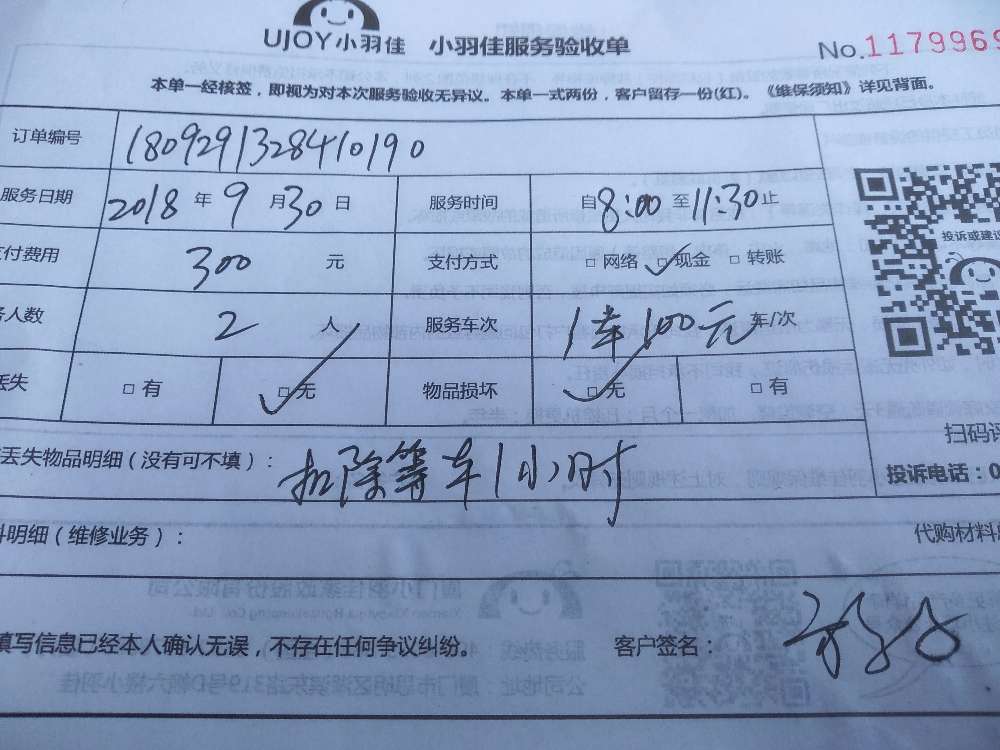 UJOY小羽佳 小羽佳服务验收单 No.1179969
本单一经核签，即视为对本次服务验收无异议。本单一式两份，客户留存一份(红)。《维保须知》详见背面。
订单编号 1809291328410190
服务日期 2018 年 9 月 30 日 服务时间 自 8:00 至 11:30 止
付费用 300 元 支付方式 □ 网络 □ 现金 □ 转账
投诉或建议
人数 2 人 服务车次 1车100元 车/次
丢失 □ 有 □ 无 物品损坏 □ 无 □ 有
扫码评
丢失物品明细（没有可不填）： 扣除等车1小时
投诉电话：0
料明细（维修业务）： 代购材料
填写信息已经本人确认无误，不存在任何争议纠纷。 客户签名：